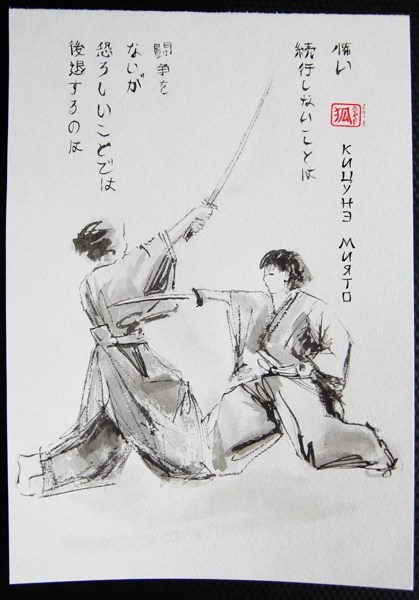 怖い
狐
КИЦУНЭ МИЯТО
続行しないことは
闘争を
ないが
恐ろしいことでは
後退するのは